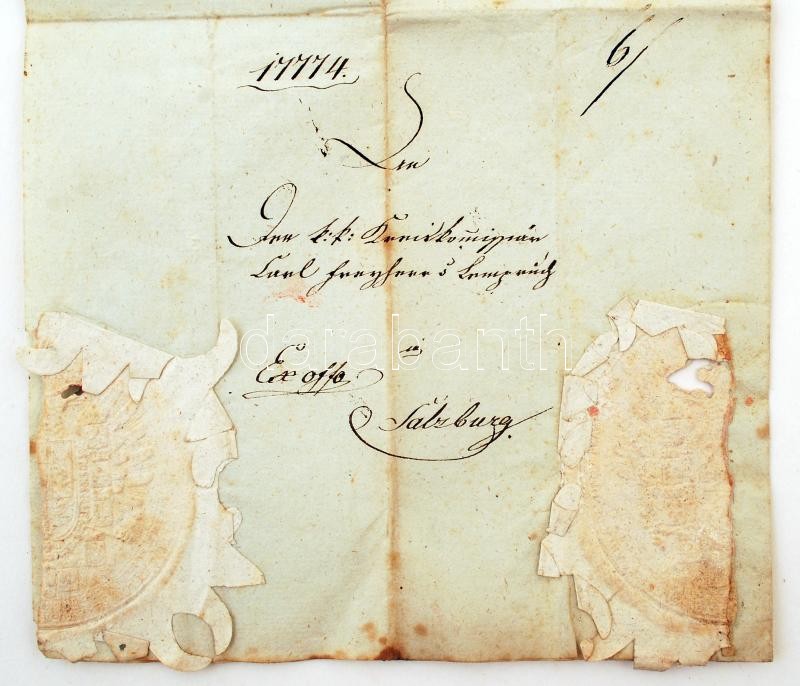 17774.
6/
An
Den k: k: Kreiskomissär
Carl Freyherr v Lemprüch
in
Ex offo
Salzburg.
darabanth